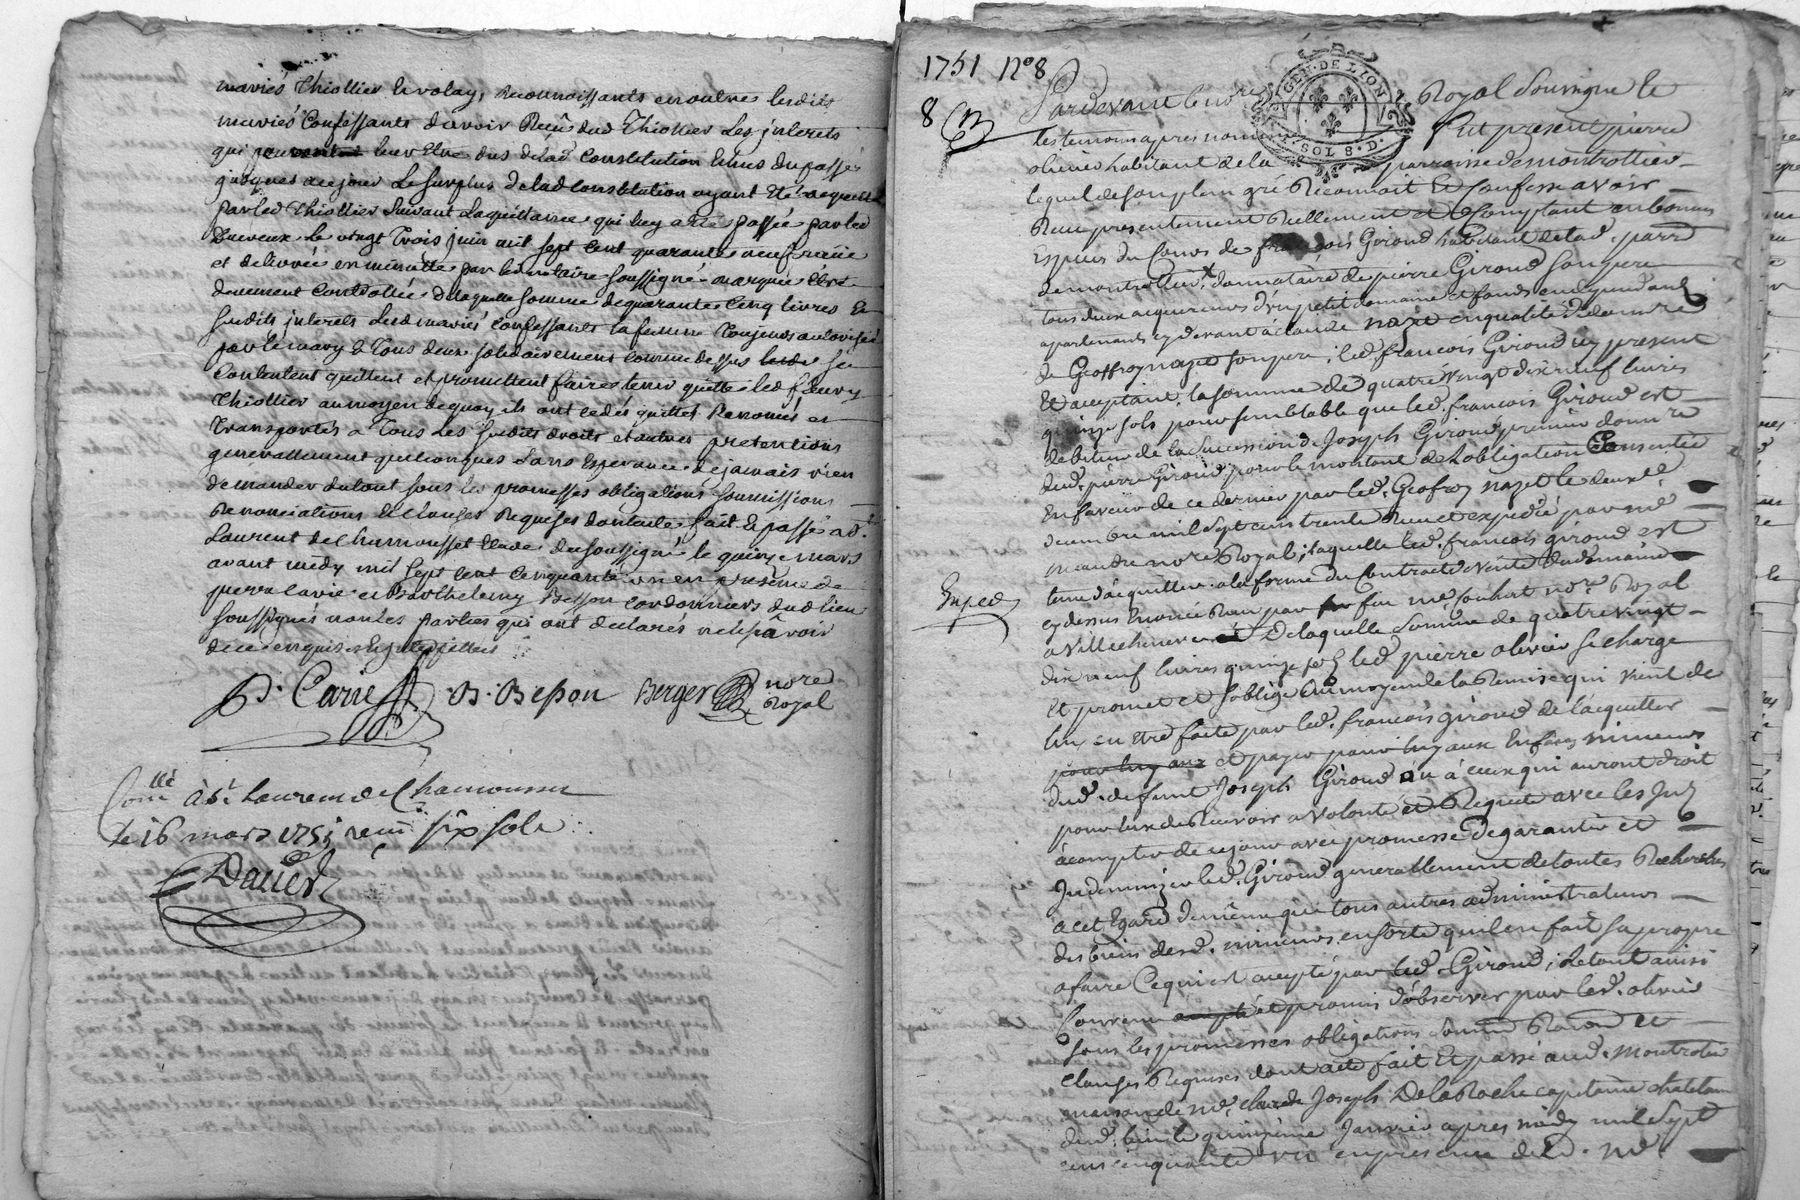 mariés Thiollier Levolay, Reconnoissants en outre lesdits
mariés Confessants d'avoir Reçû dud Thiollier Les jnterets
qui peuvent leur Etre dus de lad Constitution Echus du passé
jusques a ce jour Le surplus de lad Constitution ayant Eté acquitté
par led Thiollier suivant la quittance qui luy a eté passée par led
le vingt Trois juin mil sept cent quarante neuf
et delivrée en minutte par le notaire soussigné
deument Controllée de laquelle somme de quarante Cinq livres Et
susdits jnterets Lesd mariés Confessants la femme Toujours autorisée
par le mary & Tous deux solidairement comme dessus se
Contentent quittent et promettent faire tenir quitte led fleury
Thiollier au moyen de quoy ils ont cedés quittés Remis et
Transportés a Tous Les susdits droits et autres pretentions
generallement quelconques sans Esperance de jamais rien
demander du tout sous les promesses obligations soumissions
Renonciations & Clauses Requises dont acte fait & passé a St
Laurent de Chamousset Etude du soussigné le quinze mars
avant midy mil sept cent Cinquante un en presence de
pierre Carie et Barthelemy Besson Cordonniers dud lieu
soussignés non les parties qui ont declarés ne sçavoir
de ce enquis
P. Carie B. Besson Berger nore Royal
Conllé à St Laurent de Chamousset
le 16 mars 1751 reçu six sols
1751 No 8
8
GEN. DE LION
SOL 8. D.
Pardevant le nore Royal Soussigné le
les temoins apres nommés fut present pierre
olivier habitant de la parroisse de montrottier
lequel de son plein gré Reconnoit Et Confesse avoir
Receu presentement Reellement et Comptant en bonnes
Espèces du Cours de françois Giroud habitant de lad. parr
de montrottier, donnataire de pierre Giroud son pere
tous deux acquereurs d'un petit domaine et fonds en dependant
apartenants cy devant à claude nazet en qualité d'
de Geoffroy nazet son pere; led. françois Giroud icy present
Et acceptant, la somme de quatre vingt dix neuf livres
quinze sols pour semblable que led. françois Giroud est
debiteur de la succession de Joseph Giroud
dud. pierre Giroud pour le montant de l'obligation Consentie
En faveur de ce dernier par led. Geofroy nazet le deux
decembre mil sept cens trente Receu et expedié par me
nore Royal; laquelle led. françois giroud est
tenu d'acquitter a la forme du Contract de vente dud domaine
Exped
cy dessus Enoncé Receu par feu me nore Royal
a Villechenève Delaquelle somme de quatre vingt
dix neuf livres quinze sols led pierre olivier se charge
Et promet et s'oblige au moyen de la Remise qui vient de
luy en Etre faite par led. françois giroud de l'acquitter
pour luy aux et payer pour luy aux Enfans mineurs
dud. defunt Joseph Giroud ou à ceux qui auront droit
pour eux de Recevoir a volonté et Requete avec les Jnts
àcompter de ce jour avec promesse de garantir et
Jndemnizer led. Giroud generallement de toutes Recherches
a cet Egard de même que tous autres administrateurs
des biens desd. mineurs, en sorte qu'il en fait sa propre
afaire Ce qui est accepté par led. Giroud; Le tout ainsi
Convenu accepté et promis d'observer par led. olivier
sous les promesses obligations soum Renon et
Clauses Requises dont acte fait Et passé aud. montrotier
maison de me. claude Joseph DelaRoche capitaine chatelain
dud. lieu le quinzieme Janvier apres midy mil sept
cens cinquante un en presence dud. me